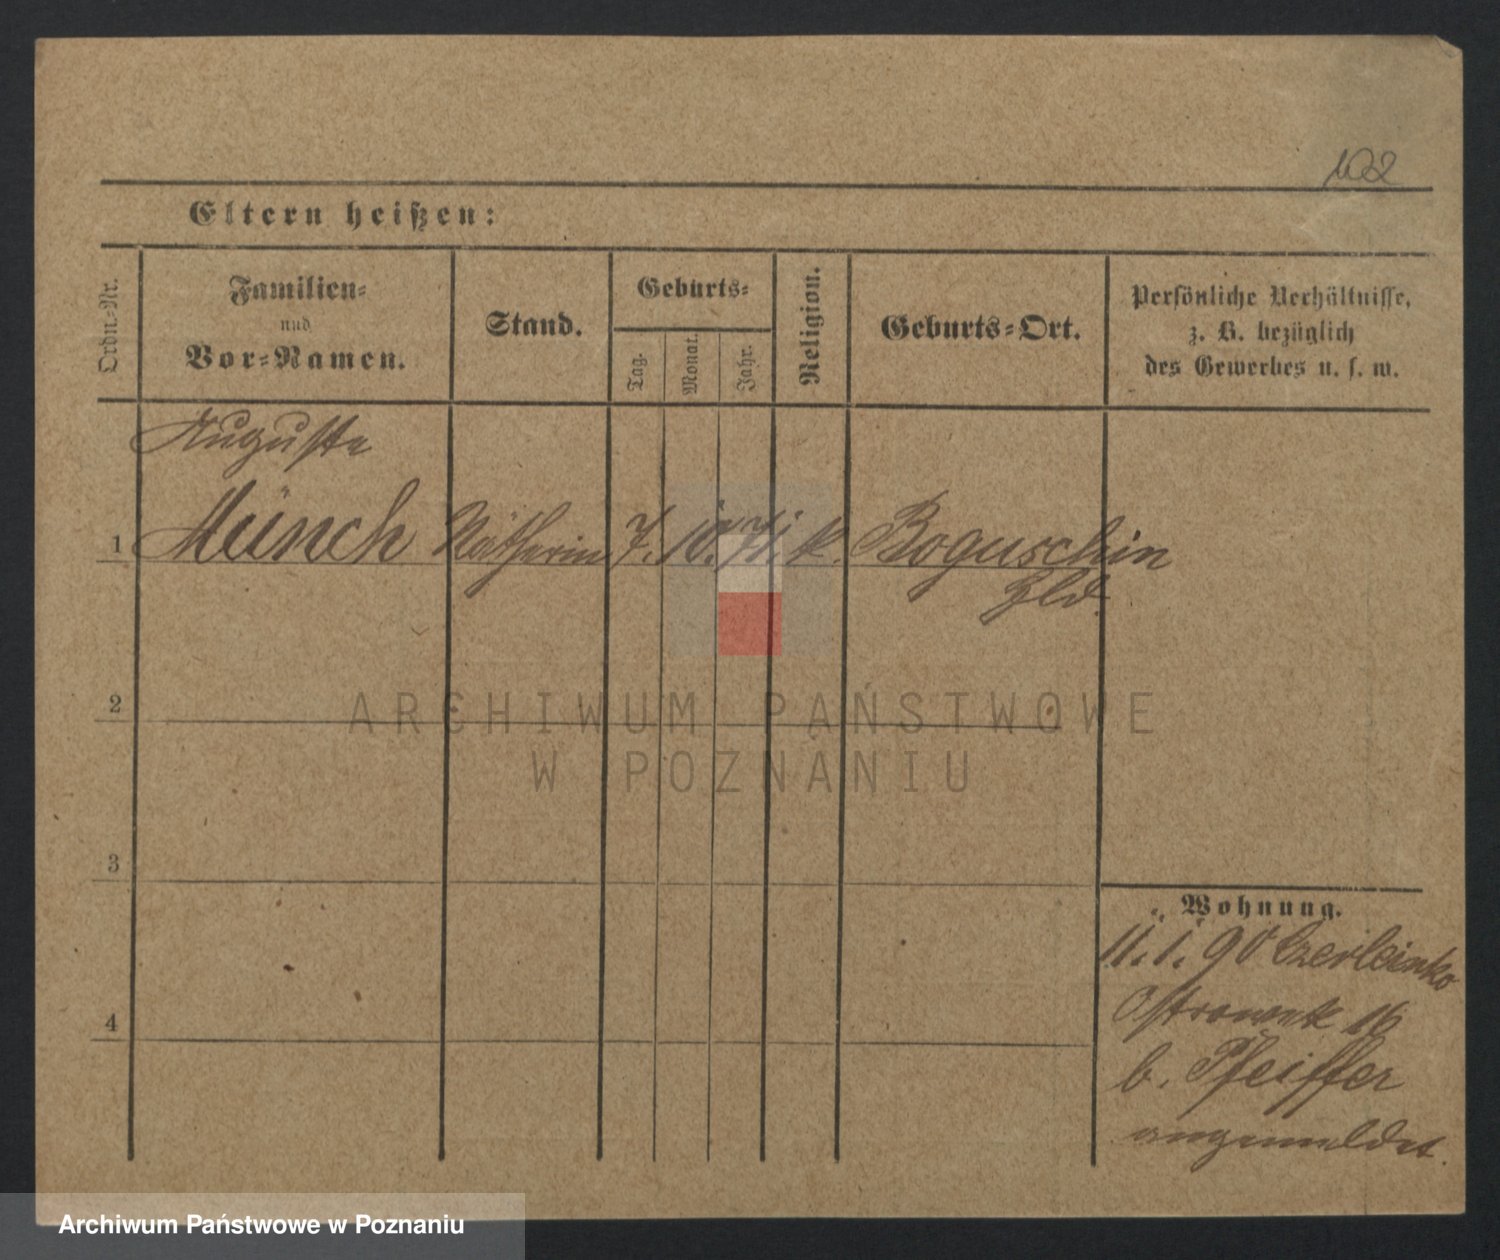 102
Eltern heißen:
Ordn.-Nr.
Familien-
und
Vor-Namen.
Stand.
Geburts-
Tag.
Monat.
Jahr.
Religion.
Geburts-Ort.
Persönliche Verhältnisse,
z. B. bezüglich
des Gewerbes u. s. w.
Auguste
1 Münch Nätherin 7. 10. 71. k. Boguschin
2
ARCHIWUM PAŃSTWOWE
W POZNANIU
3
Wohnung.
11. 1. 90 Czerleinko
4
Ostrowek 16
b. Pfeiffer
angemeldet.
Archiwum Państwowe w Poznaniu